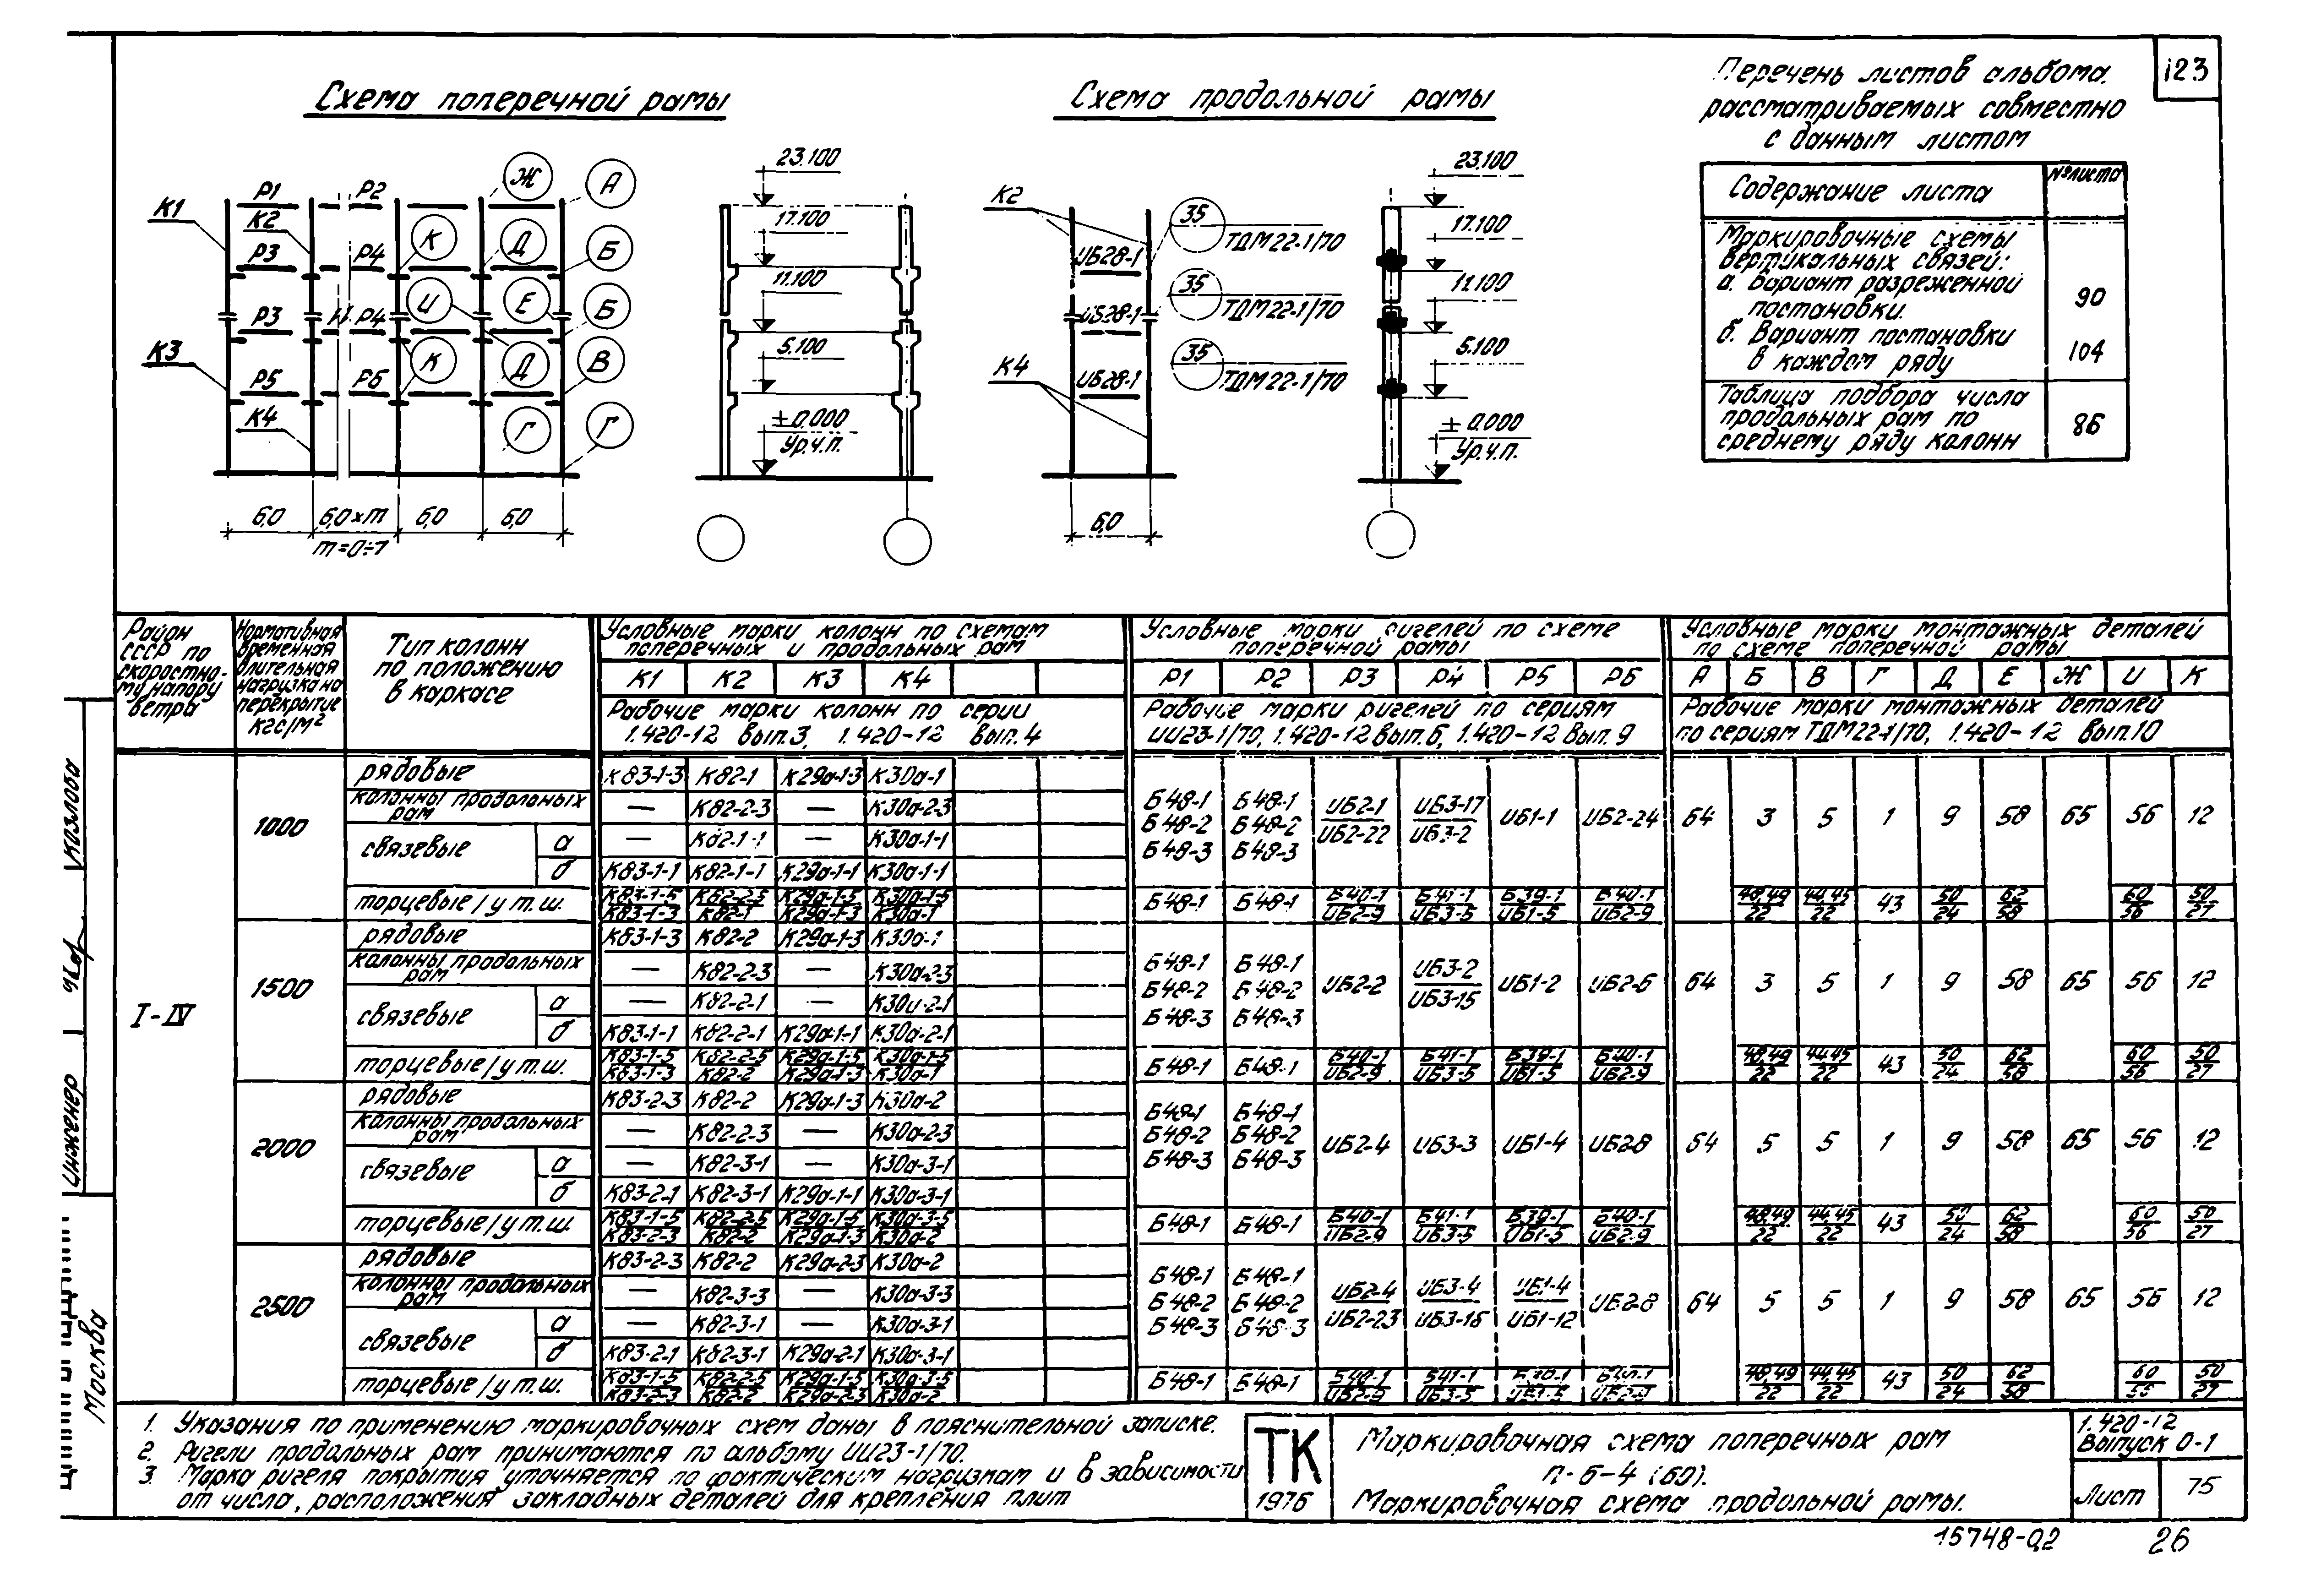 123
Схема поперечной рамы
Схема продольной рамы
Перечень листов альбома,
рассматриваемых совместно
с данным листом
Содержание листа
№ листа
Маркировочные схемы
вертикальных связей:
а. Вариант разреженной
постановки.
90
б. Вариант постановки
в каждом ряду
104
Таблица подбора числа
продольных рам по
среднему ряду колонн
86
К1 Р1 К2 Р2 Ж А
Р3 Р4 К Д Б
Р3 Р4 И Е Б
К3 Р5 Р6 К Д В
К4 Г Г
6,0 6,0×m 6,0 6,0
m=0÷7
23.100
17.100
11.100
5.100
±0.000
Ур.ч.п.
К2
ИБ28-1
35
ТДМ22-1/70
ИБ28-1
35
ТДМ22-1/70
К4
ИБ28-1
35
ТДМ22-1/70
6,0
23.100
17.100
11.100
5.100
±0.000
Ур.ч.п.
Район
СССР по
скоростно-
му напору
ветра
Нормативная
временная
длительная
нагрузка на
перекрытие
кгс/м²
Тип колонн
по положению
в каркасе
Условные марки колонн по схемам
поперечных и продольных рам
К1 К2 К3 К4
Рабочие марки колонн по серии
1.420-12 вып.3, 1.420-12 вып.4
Условные марки ригелей по схеме
поперечной рамы
Р1 Р2 Р3 Р4 Р5 Р6
Рабочие марки ригелей по сериям
ИИ23-1/70, 1.420-12 вып.6, 1.420-12 вып.9
Условные марки монтажных деталей
по схеме поперечной рамы
А Б В Г Д Е Ж И К
Рабочие марки монтажных деталей
по сериям ТДМ22-1/70, 1.420-12 вып.10
I-IV
1000
рядовые К83-1-3 К82-1 К29а-1-3 К30а-1
колонны продольных рам — К82-2-3 — К30а-2-3
связевые а — К82-1-1 — К30а-1-1
б К83-1-1 К82-1-1 К29а-1-1 К30а-1-1
торцевые/у т.ш. К83-1-5/К83-1-3 К82-2-5/К82-1 К29а-1-5/К29а-1-3 К30а-1-5/К30а-1
Б48-1 Б48-1
Б48-2 Б48-2
Б48-3 Б48-3
ИБ2-1/ИБ2-22 ИБ3-17/ИБ3-2 ИБ1-1 ИБ2-24
64 3 5 1 9 58 65 56 12
Б48-1 Б48-1 Б40-1/ИБ2-9 Б41-1/ИБ3-5 Б39-1/ИБ1-5 Б40-1/ИБ2-9
48,49/22 44,45/22 43 50/24 62/58 60/56 50/27
1500
рядовые К83-1-3 К82-2 К29а-1-3 К30а-1
колонны продольных рам — К82-2-3 — К30а-2-3
связевые а — К82-2-1 — К30а-2-1
б К83-1-1 К82-2-1 К29а-1-1 К30а-2-1
торцевые/у т.ш. К83-1-5/К83-1-3 К82-2-5/К82-2 К29а-1-5/К29а-1-3 К30а-2-5/К30а-1
Б48-1 Б48-1
Б48-2 Б48-2
Б48-3 Б48-3
ИБ2-2 ИБ3-2/ИБ3-15 ИБ1-2 ИБ2-6
64 3 5 1 9 58 65 56 12
Б48-1 Б48-1 Б40-1/ИБ2-9 Б41-1/ИБ3-5 Б39-1/ИБ1-5 Б40-1/ИБ2-9
48,49/22 44,45/22 43 50/24 62/58 60/56 50/27
2000
рядовые К83-2-3 К82-2 К29а-1-3 К30а-2
колонны продольных рам — К82-2-3 — К30а-2-3
связевые а — К82-3-1 — К30а-3-1
б К83-2-1 К82-3-1 К29а-1-1 К30а-3-1
торцевые/у т.ш. К83-1-5/К83-2-3 К82-2-5/К82-2 К29а-1-5/К29а-1-3 К30а-3-5/К30а-2
Б48-1 Б48-1
Б48-2 Б48-2
Б48-3 Б48-3
ИБ2-4 ИБ3-3 ИБ1-4 ИБ2-8
64 5 5 1 9 58 65 56 12
Б48-1 Б48-1 Б40-1/ИБ2-9 Б41-1/ИБ3-5 Б39-1/ИБ1-5 Б40-1/ИБ2-9
48,49/22 44,45/22 43 50/24 62/58 60/56 50/27
2500
рядовые К83-2-3 К82-2 К29а-2-3 К30а-2
колонны продольных рам — К82-3-3 — К30а-3-3
связевые а — К82-3-1 — К30а-3-1
б К83-2-1 К82-3-1 К29а-2-1 К30а-3-1
торцевые/у т.ш. К83-1-5/К83-2-3 К82-2-5/К82-2 К29а-1-5/К29а-2-3 К30а-3-5/К30а-2
Б48-1 Б48-1
Б48-2 Б48-2
Б48-3 Б48-3
ИБ2-4/ИБ2-23 ИБ3-4/ИБ3-16 ИБ1-4/ИБ1-12 ИБ2-8
64 5 5 1 9 58 65 56 12
Б48-1 Б48-1 Б40-1/ИБ2-9 Б41-1/ИБ3-5 Б39-1/ИБ1-5 Б40-1/ИБ2-9
48,49/22 44,45/22 43 50/24 62/58 60/56 50/27
1. Указания по применению маркировочных схем даны в пояснительной записке.
2. Ригели продольных рам принимаются по альбому ИИ23-1/70.
3. Марка ригеля покрытия уточняется по фактическим нагрузкам и в зависимости
от числа, расположения закладных деталей для крепления плит
ТК
1976
Маркировочная схема поперечных рам
п-6-4 (60).
Маркировочная схема продольной рамы.
1.420-12
Выпуск 0-1
Лист 75
15748-02 26
Инженер
Козлова
Москва